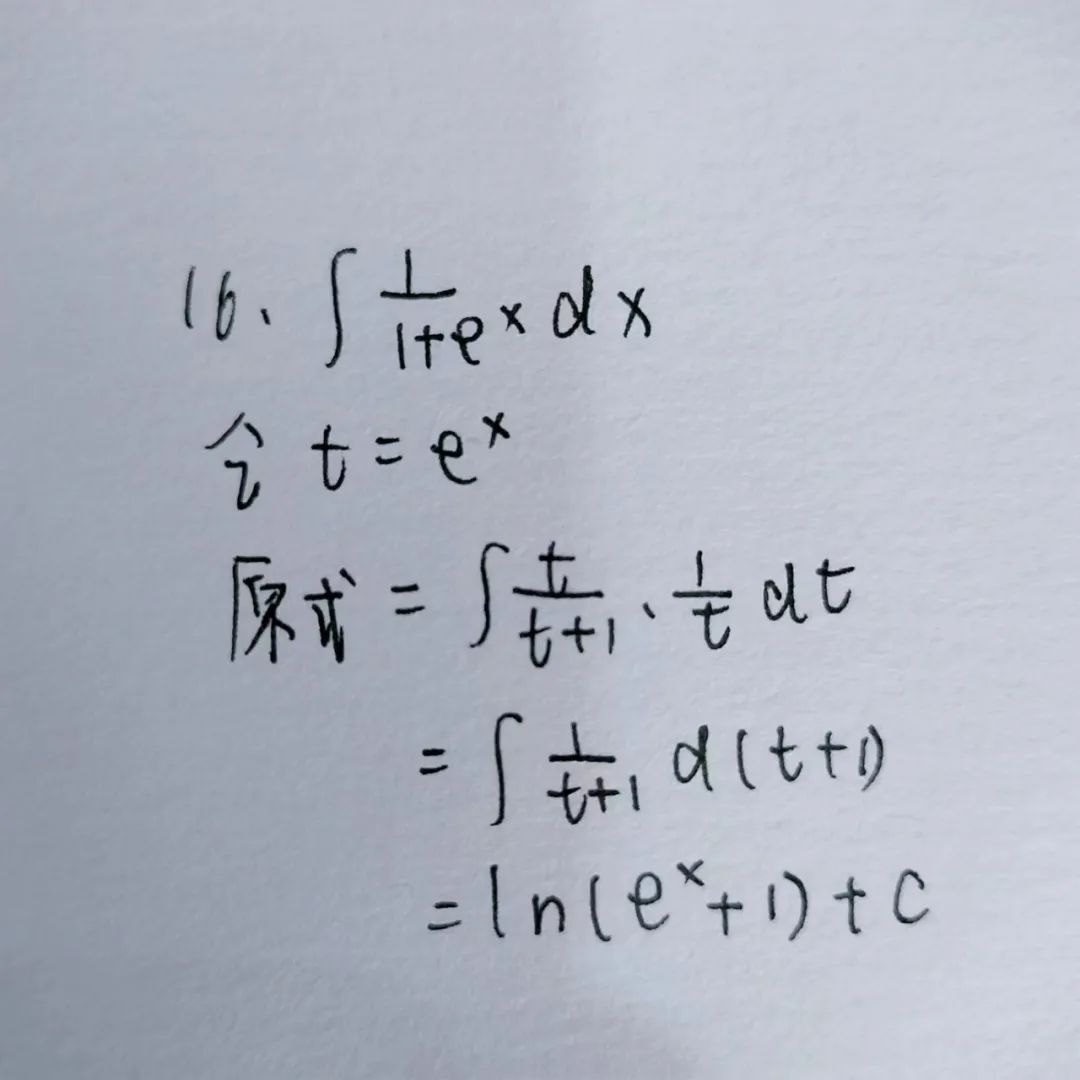 16. ∫ 1/(1+e^x) dx
令 t = e^x
原式 = ∫ t/(t+1) · 1/t dt
= ∫ 1/(t+1) d(t+1)
= ln(e^x+1)+C